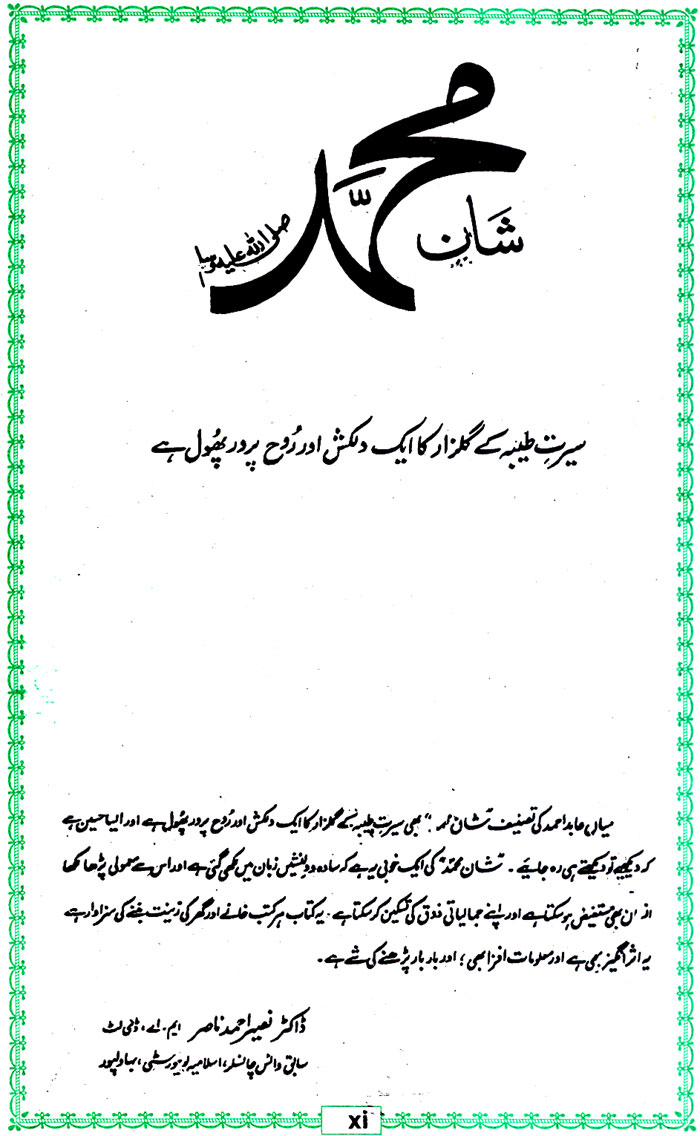 شانِ محمّد صلی اللہ علیہ وسلم
سیرتِ طیبہ کے گلزار کا ایک دلکش اور رُوح پرور پھُول ہے
میاں عابد احمد کی تصنیف "شان محمد" بھی سیرتِ طیبہ کے گلزار کا ایک دلکش اور رُوح پرور پھُول ہے اور ایسا حسین ہے
کہ دیکھیے تو دیکھتے ہی رہ جائیے۔ "شان محمد" کی ایک خوبی یہ ہے کہ سادہ و دلنشیں زبان میں لکھی گئی ہے اور اس سے معمولی پڑھا لکھا
انسان بھی مستفیض ہو سکتا ہے اور اپنے جمالیاتی ذوق کی تسکین کر سکتا ہے۔ یہ کتاب ہر کتب خانے اور گھر کی زینت بننے کی سزاوار ہے
یہ اثر انگیز بھی ہے اور معلومات افزا بھی؛ اور بار بار پڑھنے کی شے ہے۔
ڈاکٹر نصیر احمد ناصر ایم۔اے، ڈی لٹ
سابق وائس چانسلر، اسلامیہ یونیورسٹی، بہاولپور
xi